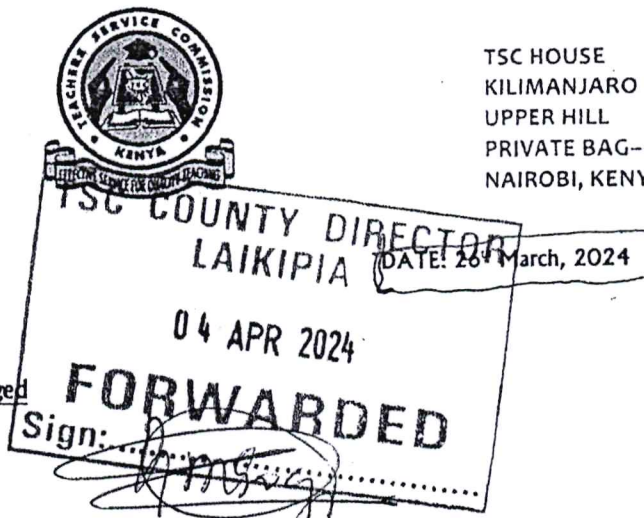 TEACHERS SERVICE COMMISSION
KENYA
EFFECTIVE SERVICE FOR QUALITY TEACHING
TSC HOUSE
KILIMANJARO
UPPER HILL
PRIVATE BAG–
NAIROBI, KENY
TSC COUNTY DIRECTOR
LAIKIPIA
DATE: 26th March, 2024
04 APR 2024
ged
FORWARDED
Sign: